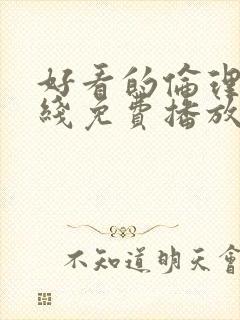 好看的倫理
綫免費播放
不知道明天會